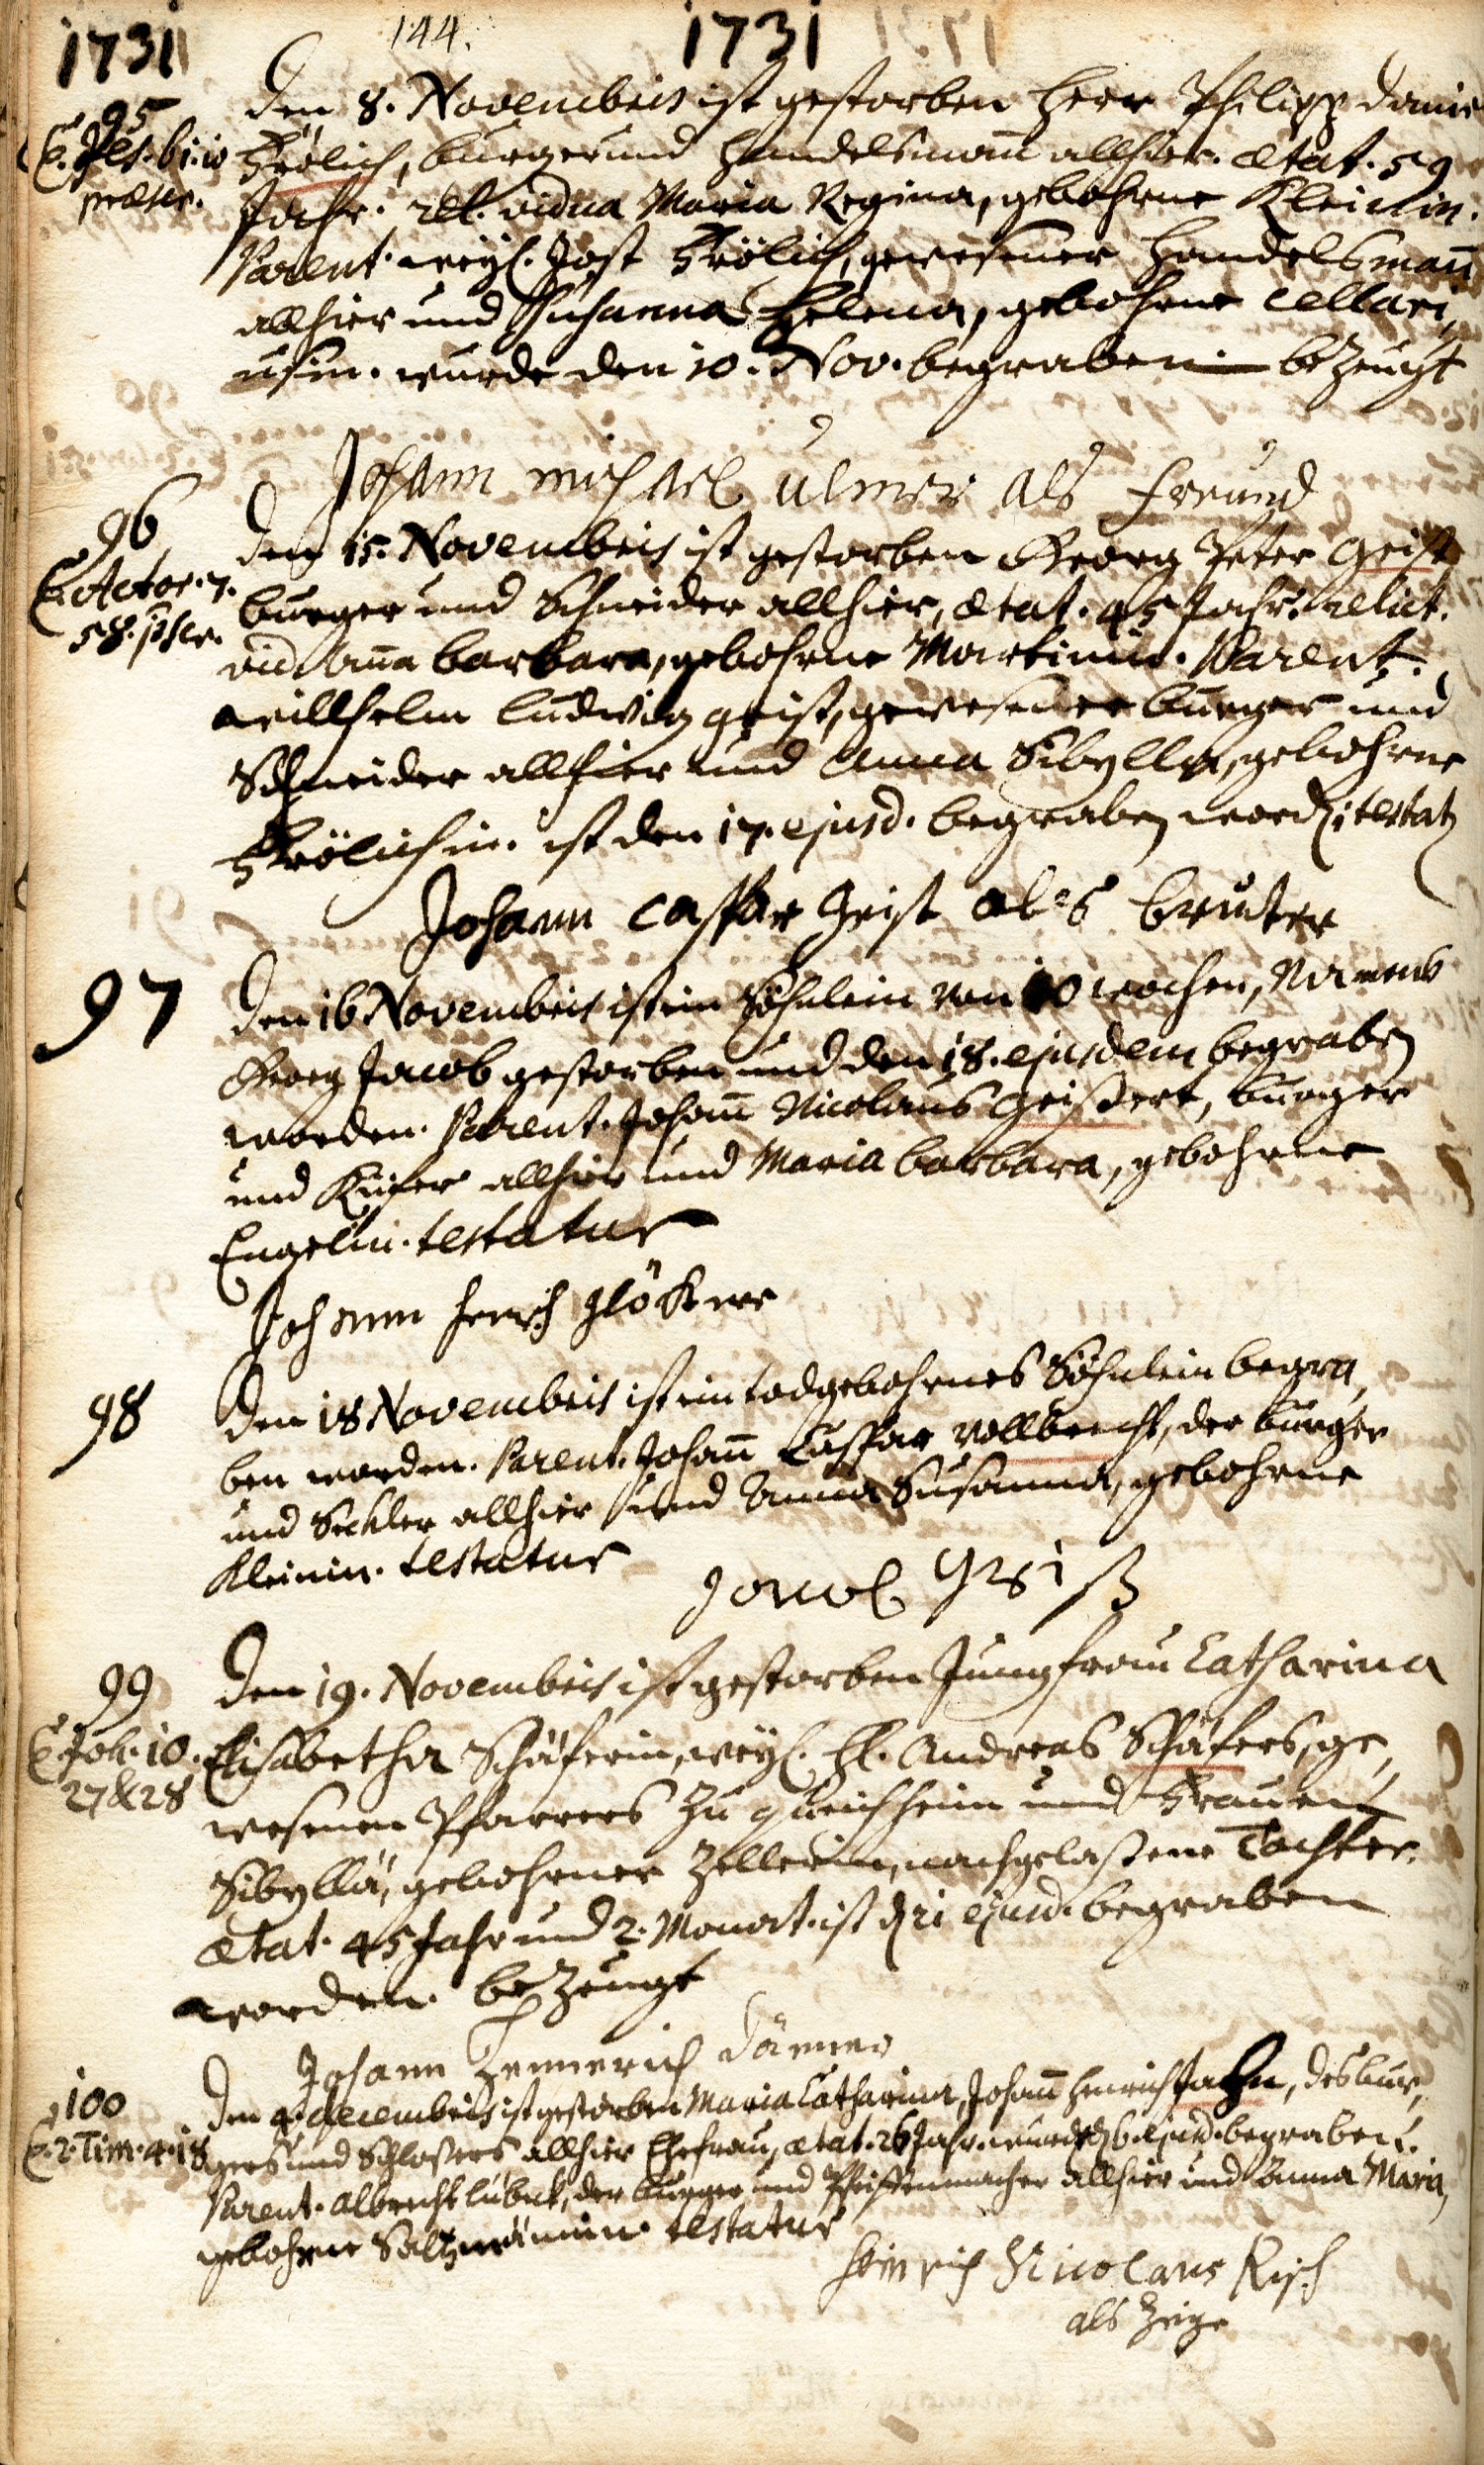 1731 144. 1731
95
E. Jes. 61. 10
præscr.
Den 8. Novembris ist gestorben Herr Philipp Danie
Frölich, burger und Handelsmañ allhier. ætat. 59
Jahr. rel. vidua Maria Regina, gebohrne Kleinin.
Parent. weyl. Jost Frölich, gewesener Handelsmañ
allhier und Susanna Helena, gebohrne Cellari,
usin. wurde den 10. Nov. begraben. bezeugt
Johann michael ulmer als freund
96
E. Actor. 7.
58. pscr.
Den 15. Novembris ist gestorben Georg Peter Geist
burger und Schneider allhier, ætat. 45 Jahr. relict.
vid. Aña barbara, gebohrne Martinin. Parent.
Willhelm Ludwig geist, gewesener burger und
Schneider allhier und Anna Sibylla, gebohrne
Frölichin. ist den 17. ejusd. begraben word. testat
Johann Caspar Geist als bruter
97
Den 16 Novembris ist ein Söhnlein von 10 wochen, Namens
Georg Jacob gestorben und den 18. ejusdem begraben
worden. Parent. Johañ Nicolaus Geissert, burger
und Küfer allhier und Maria barbara, gebohrne
Engelin. testatur
Johann Henrich glökner
98
Den 18 Novembris ist ein todgebohrnes Söhnlein begra,
ben worden. Parent. Johañ Caspar Vollbrecht, der burger
und Seckler allhier und Anna Susanna, gebohrne
Kleinin. testatur
Jacob Geiß
99
E. Joh. 10.
27 & 28
Den 19. Novembris ist gestorben Jungfrau Catharina
Elisabetha Schäferin, weyl. H. Andreas Schäfers, ge,
wesenen Pfarrers zu heim und Frauen
Sibyllä, gebohrner Zellerin, nachgelaßene Tochter.
ætat. 45 Jahr und 2. Monat. ist d 21 ejusd. begraben
worden. bezeugt
Johann Hennerich
100
E. 2. Tim. 4. 18
Den 4. decembris ist gestorben Maria Catharina, Johañ Henrich Jahn, des bur,
gers und Schloßers allhier Ehefrau, ætat. 26 Jahr. wurde d 6. ejusd. begraben.
Parent. Albrecht Lübeck, der burger und Pfeiffenmacher allhier und Anna Maria,
gebohrne testatur
Heinrich Nicolaus Risch
als Zeige